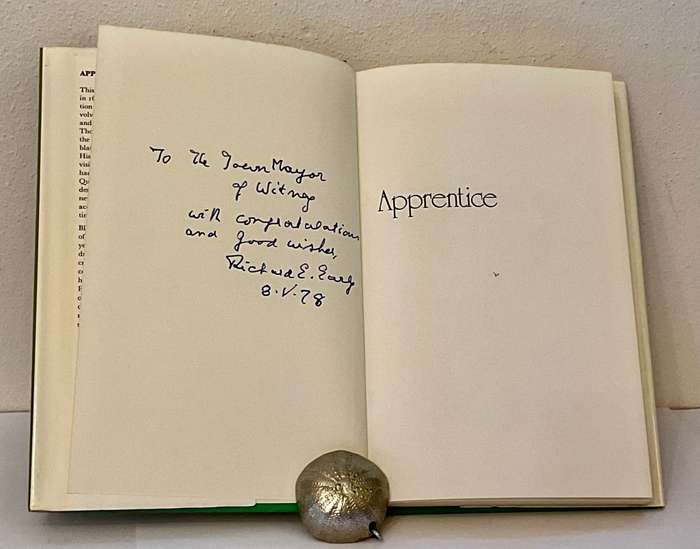 APP
This
in 16
tion
volv
and
Tho
the
bla
His
visi
had
Qu
des
ne
acc
tin
To The Town Mayor
of Witney
with congratulations
and good wishes,
Richard E. Early
8.V.78
Apprentice